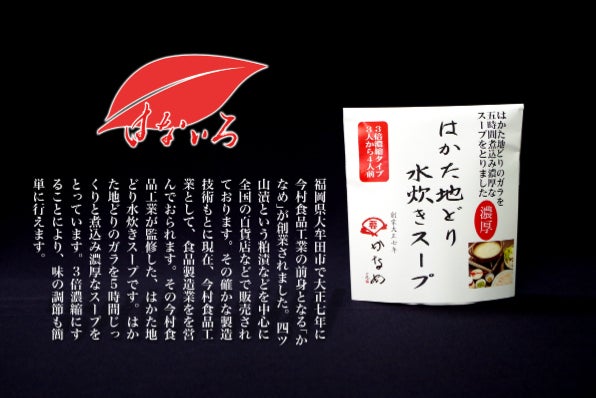 はないろ
福岡県大牟田市で大正七年に
今村食品工業の前身となる「か
なめ」が創業されました。四ツ
山漬という粕漬などを中心に
全国の百貨店などで販売され
ております。その確かな製造
技術もとに現在、今村食品工
業として、食品製造業をを営
んでおられます。その今村食
品工業が監修した、はかた地
どり水炊きスープです。はか
た地どりのガラを5時間じっ
くりと煮込み濃厚なスープを
とっています。3倍濃縮にす
ることにより、味の調節も簡
単に行えます。
はかた地どりのガラを
五時間煮込み濃厚な
スープをとりました
濃厚
はかた地どり
水炊きスープ
3倍濃縮タイプ
3人から4人前
創業大正七年
かなめ